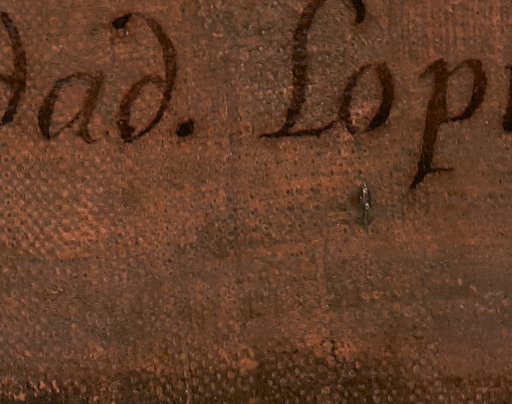 dad. Lop